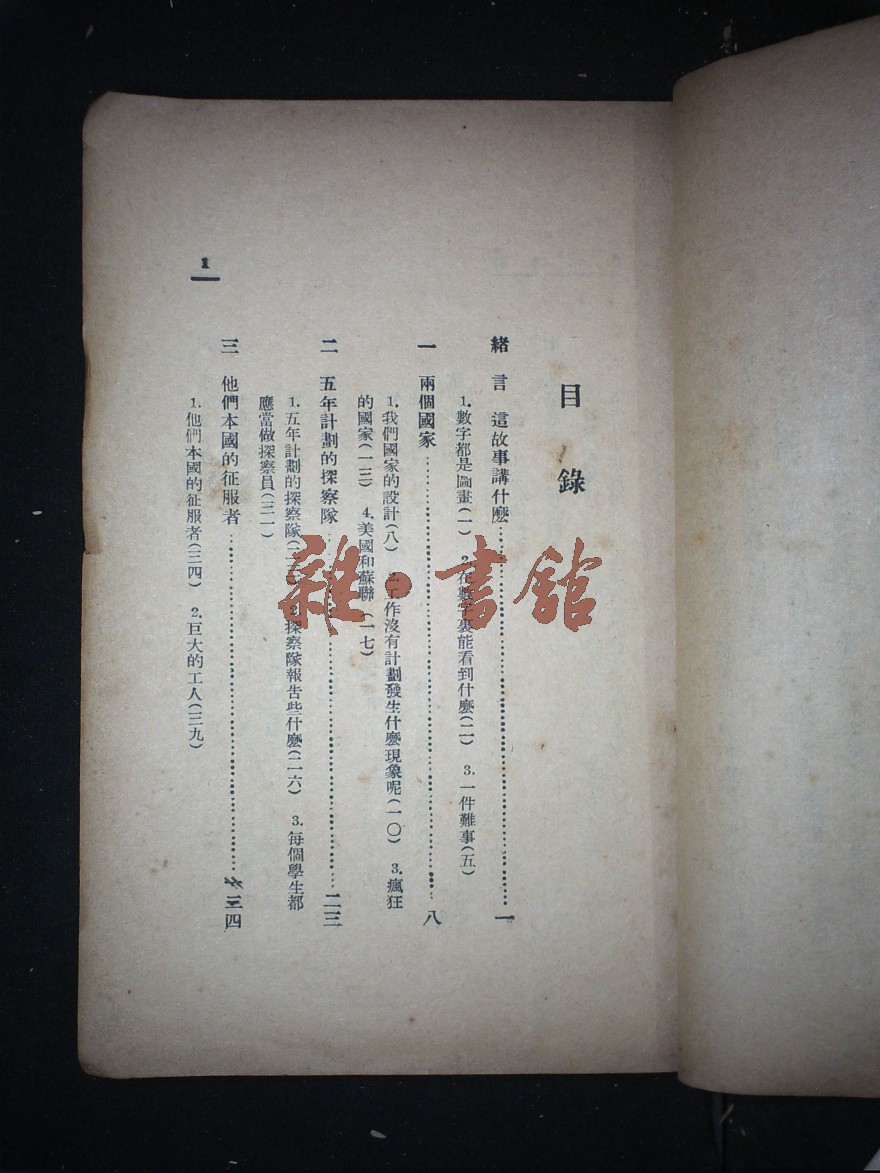 目錄
緒言 這故事講什麼……一
1.數字都是圖畫(一) 2.在數字裏能看到什麼(二) 3.一件難事(五)
一 兩個國家……八
1.我們國家的設計(八) 2.工作沒有計劃發生什麼現象呢(一〇) 3.瘋狂
的國家(一三) 4.美國和蘇聯(一七)
二 五年計劃的探察隊……二三
1.五年計劃的探察隊(二三) 2.探察隊報告些什麼(二六) 3.每個學生都
應當做探察員(三一)
三 他們本國的征服者……三四
1.他們本國的征服者(三四) 2.巨大的工人(三九)
1
雜·書館